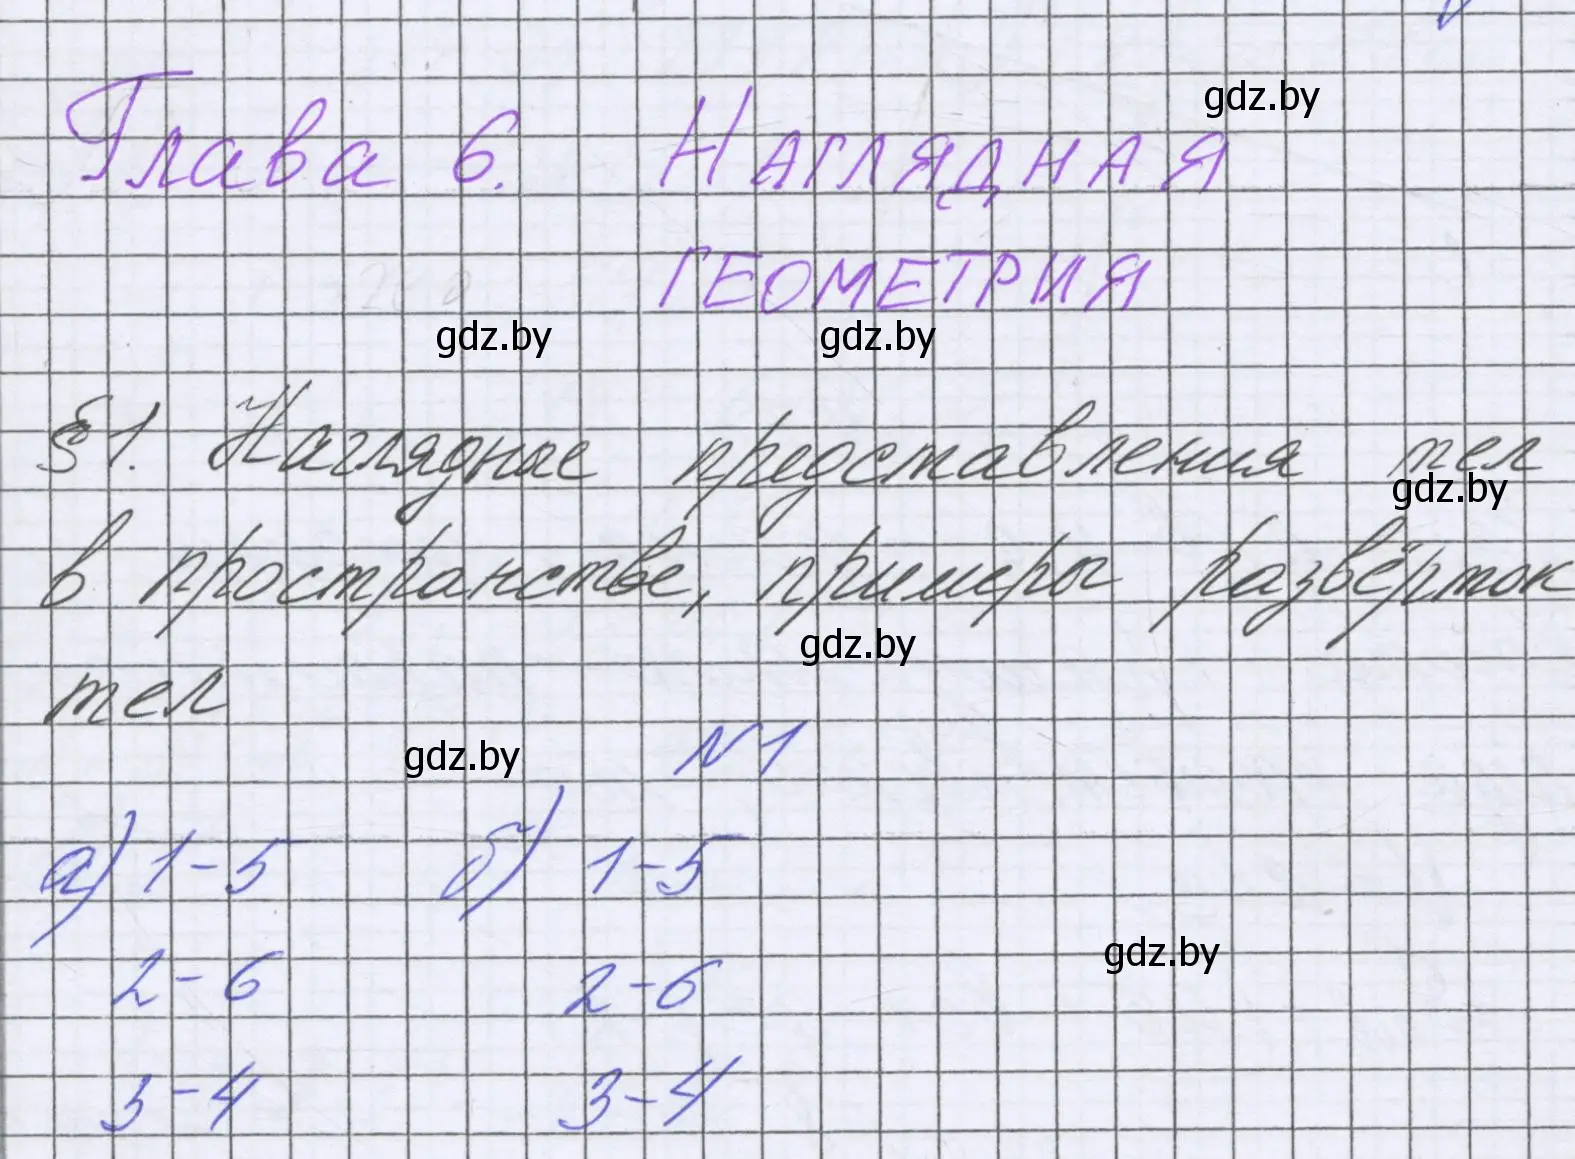 gdz.by
Глава 6. НАГЛЯДНАЯ
ГЕОМЕТРИЯ
gdz.by gdz.by
§1. Наглядные представления тел
gdz.by
в пространстве, примеры развёрток
gdz.by
тел
gdz.by N1
а) 1-5 б) 1-5
gdz.by
2-6 2-6
3-4 3-4